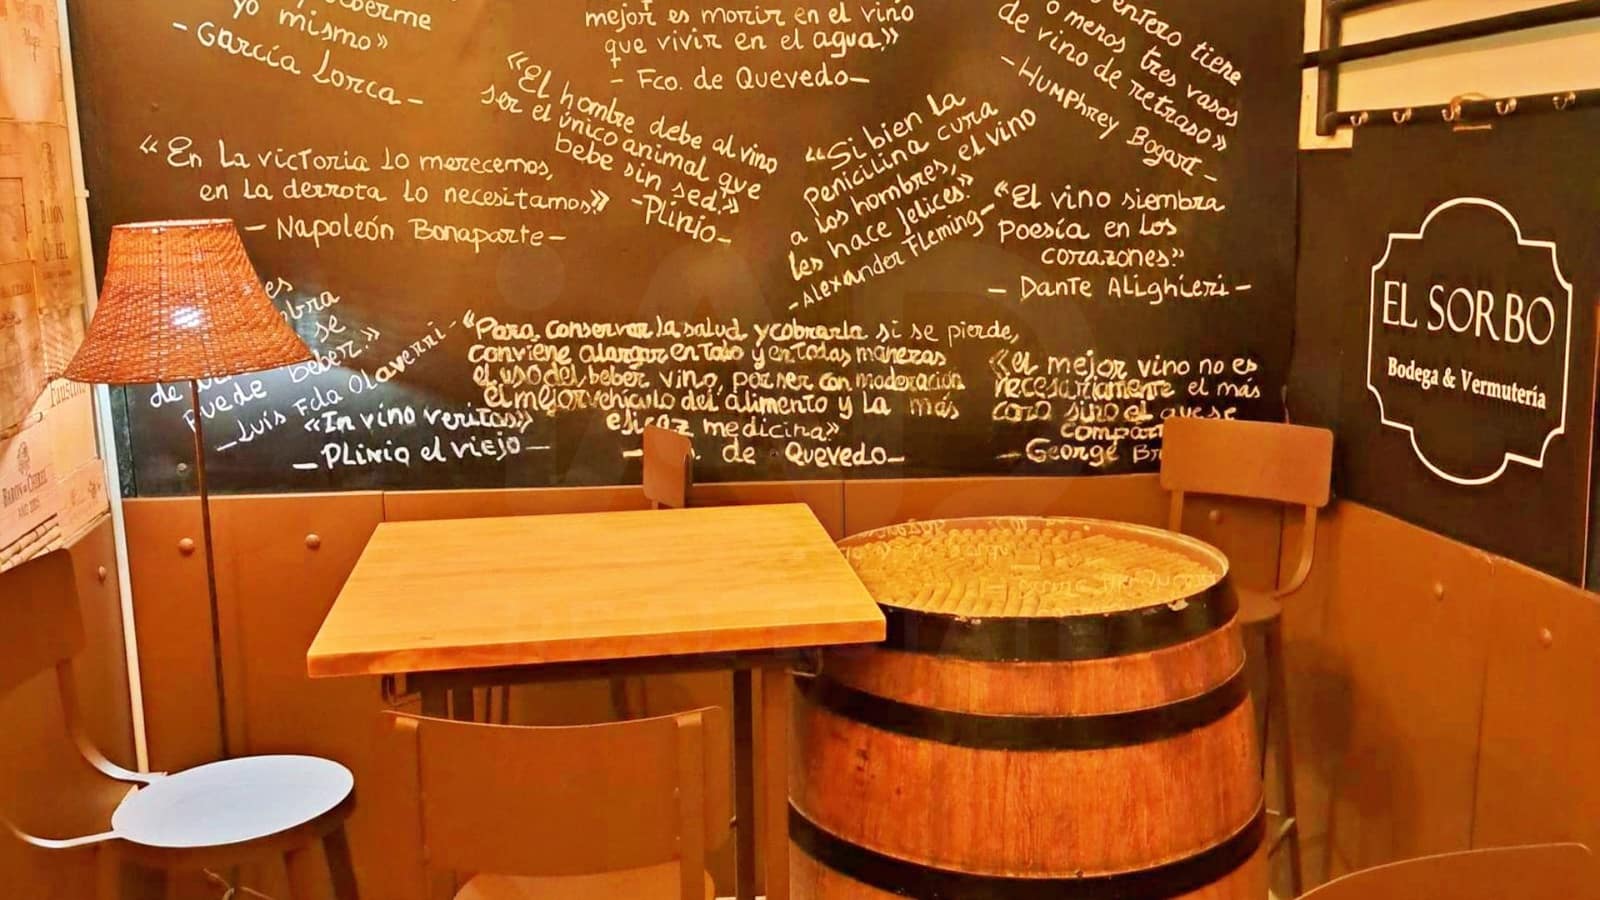 yo mismo»
- García Lorca -
mejor es morir en el vino
que vivir en el agua.»
- Fco. de Quevedo -
entero tiene
o menos tres vasos
de vino de retraso»
- Humphrey Bogart -
«El hombre debe al vino
ser el único animal que
bebe sin sed.»
- Plinio -
«En la victoria lo merecemos,
en la derrota lo necesitamos»
- Napoleón Bonaparte -
«Si bien la
penicilina cura
a los hombres, el vino
les hace felices.»
- Alexander Fleming -
«El vino siembra
poesía en los
corazones.»
- Dante Alighieri -
es
se
de
puede beber.»
- Luis Fdo Olaverri -
«Para conservar la salud y cobrarla si se pierde,
conviene alargar en todo y en todas maneras
el uso del beber vino, por ser con moderación
el mejor vehículo del alimento y la más
eficaz medicina»
de Quevedo -
«In vino veritas»
- Plinio el viejo -
«el mejor vino no es
necesariamente el más
caro sino el que se
- George
EL SORBO
Bodega & Vermutería
BARON DE CHIREL